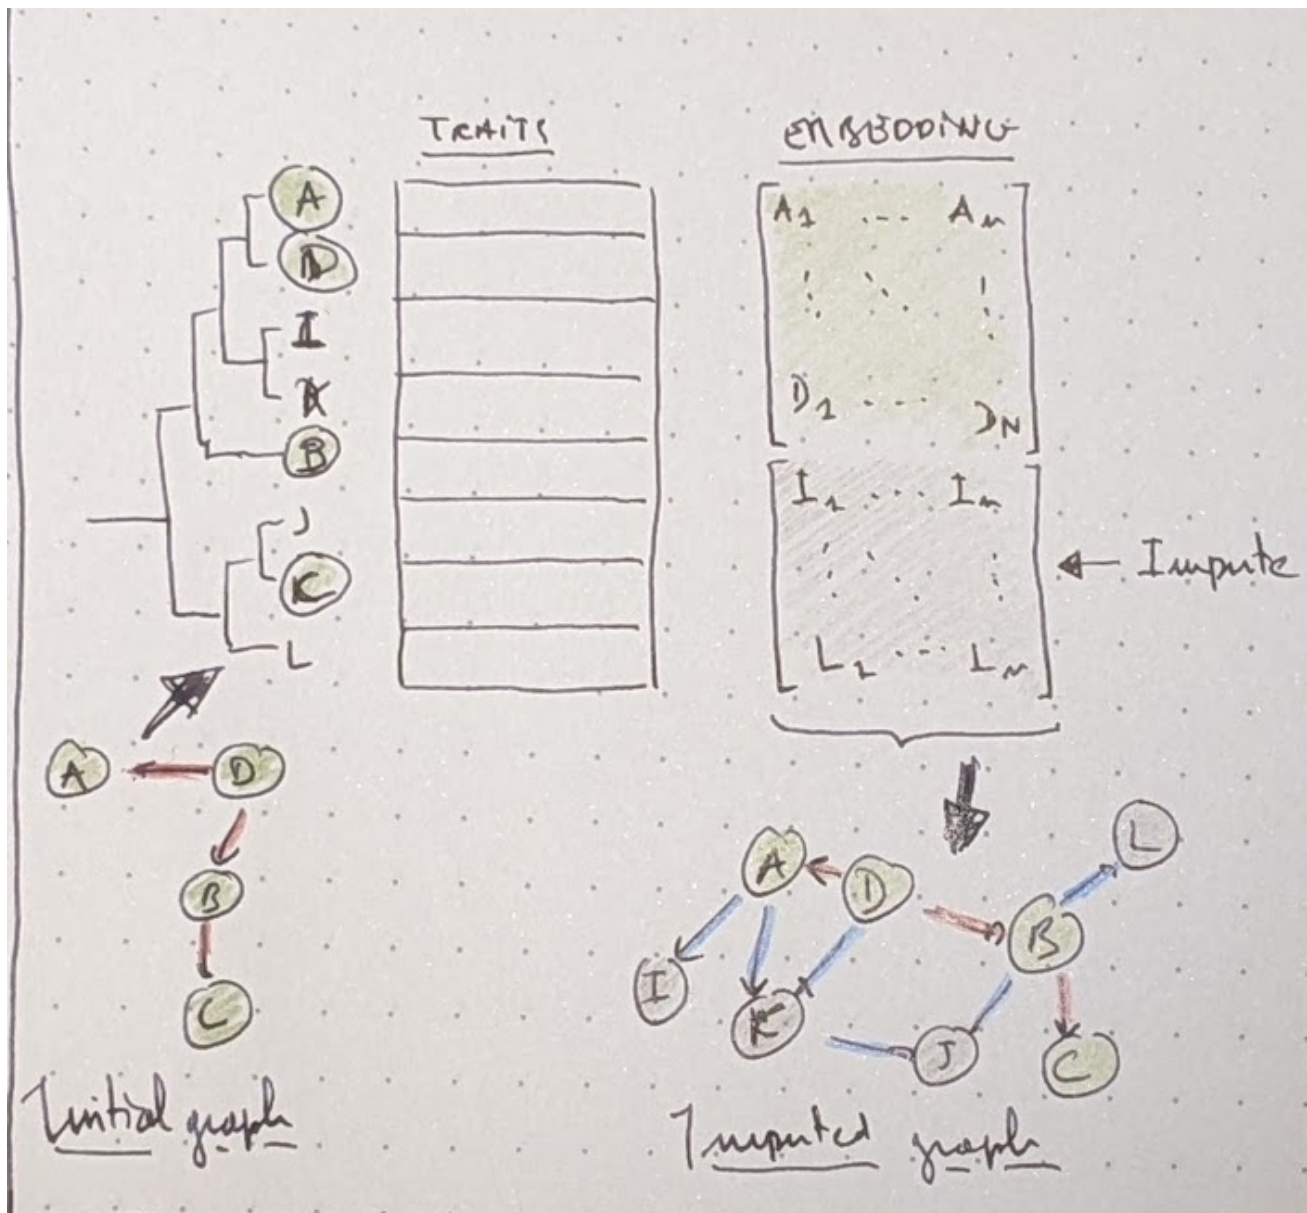 TRAITS
EMBEDDING
A
D
I
K
B
J
C
L
A1 ... An
D1 .... DN
I1 .... In
L1 .... Ln
← Impute
A
D
B
C
Initial graph
A
D
L
B
I
K
J
C
Imputed graph